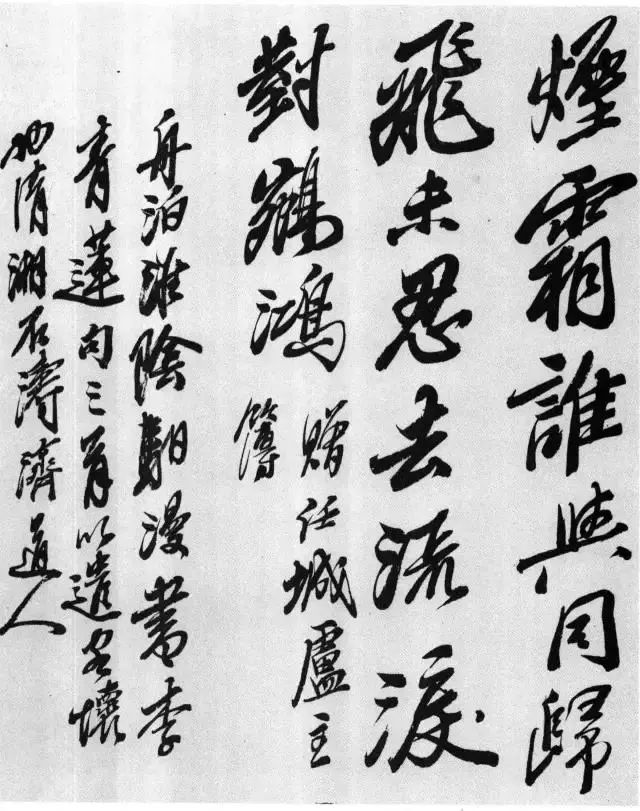 煙霜誰與同歸
飛未忍去流淚
對鵷鴻
贈任城盧主
簿
舟泊淮陰漫書李
青蓮句三首以遣客懷
也清湘石濤濟道人